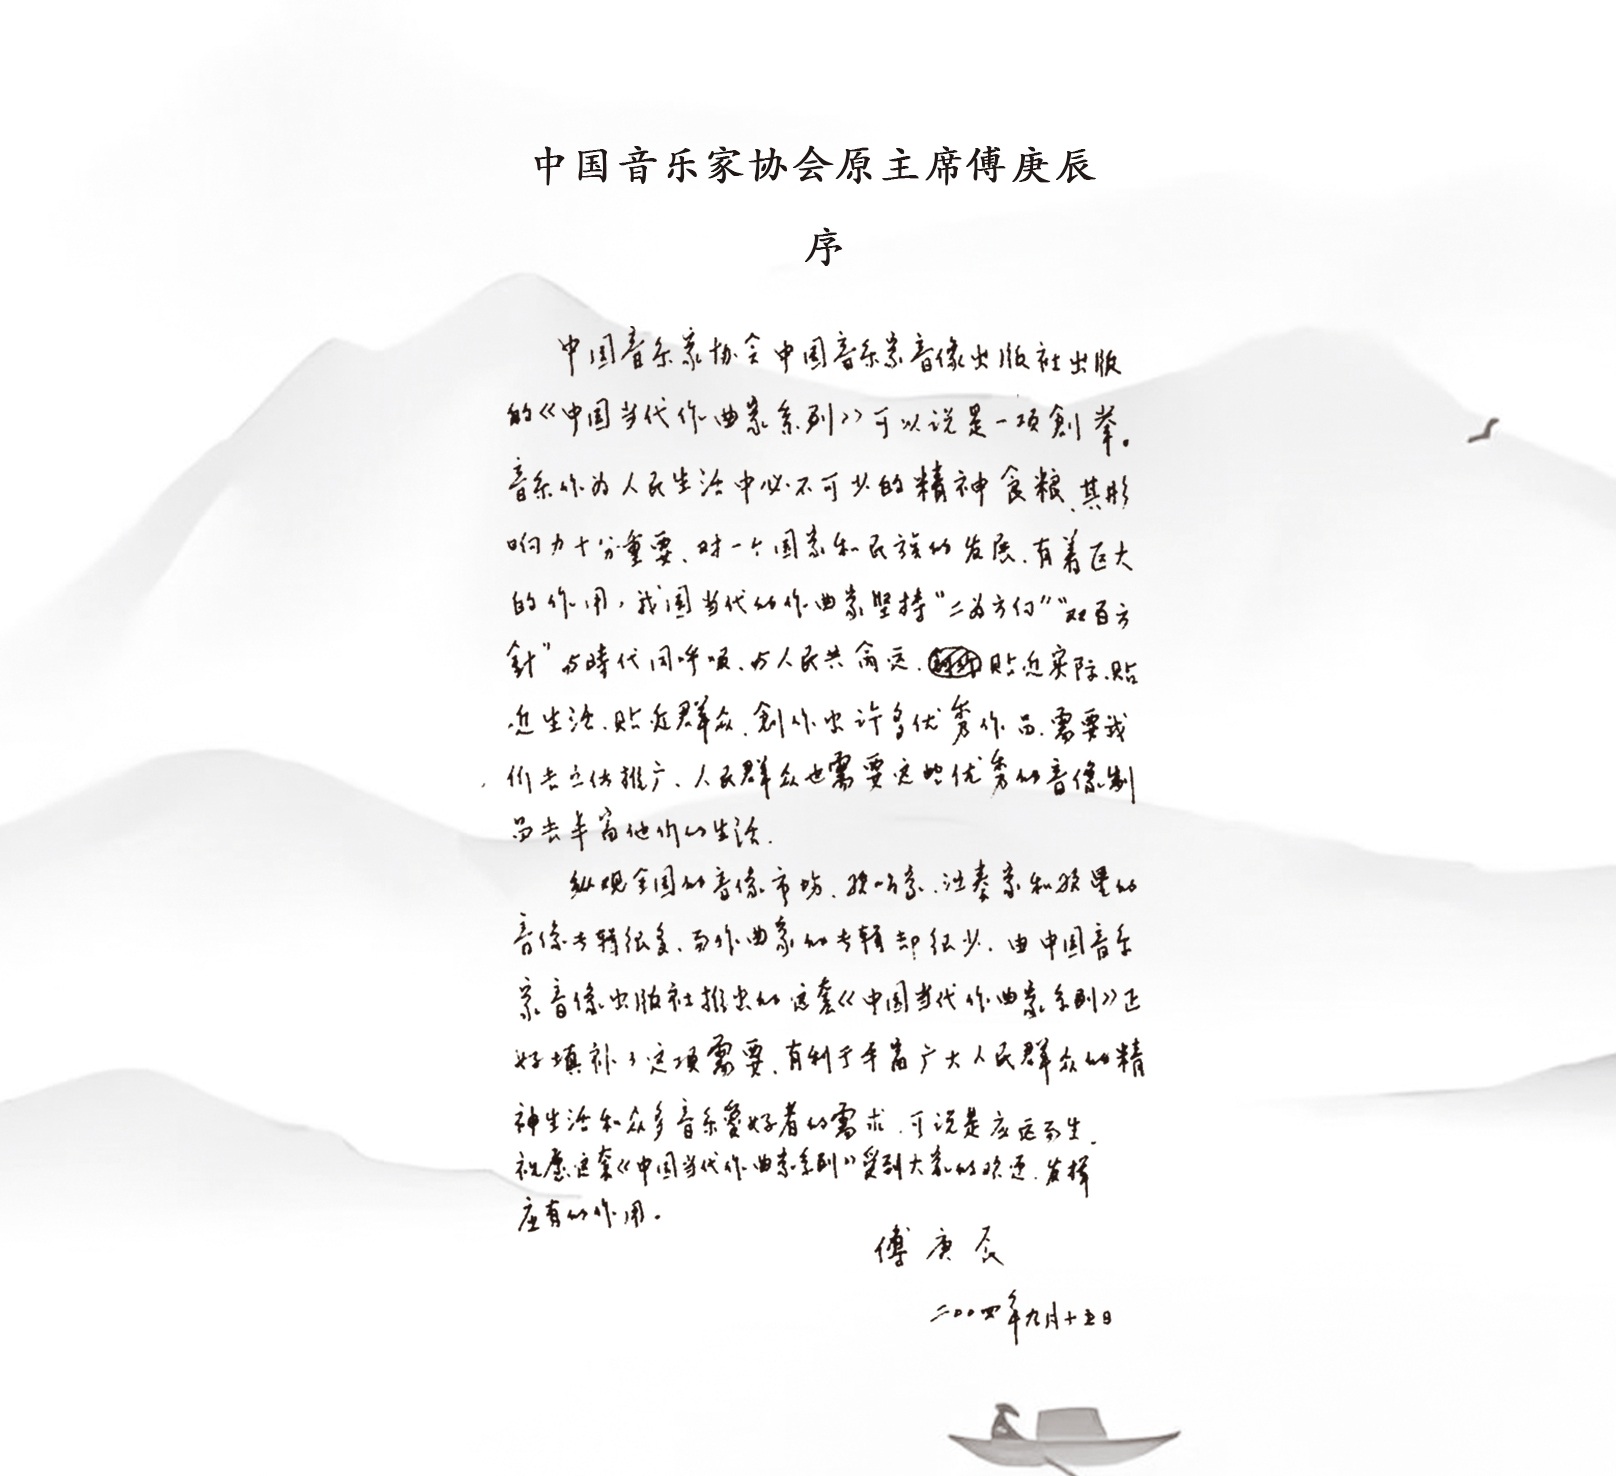 中国音乐家协会原主席傅庚辰
序
中国音乐家协会中国音乐家音像出版社出版
的《中国当代作曲家系列》可以说是一项創举。
音乐作为人民生活中必不可少的精神食粮、其影
响力十分重要、对一个国家和民族的发展、有着巨大
的作用，我国当代的作曲家坚持“二为方向”“双百方
針”与時代同呼吸、与人民共命运、贴近实际、贴
近生活、贴近群众、創作出许多优秀作品、需要我
们去宣传推广、人民群众也需要这些优秀的音像制
品去丰富他们的生活.
纵观全国的音像市场、歌唱家、演奏家和歌星的
音像专辑很多、而作曲家的专辑却很少、由中国音乐
家音像出版社推出的这套《中国当代作曲家系列》正
好填补了这项需要、有利于丰富广大人民群众的精
神生活和众多音乐愛好者的需求、可说是应运而生.
祝愿这套《中国当代作曲家系列》受到大家的欢迎、发揮
应有的作用。
傅庚辰
二〇〇四年九月十五日